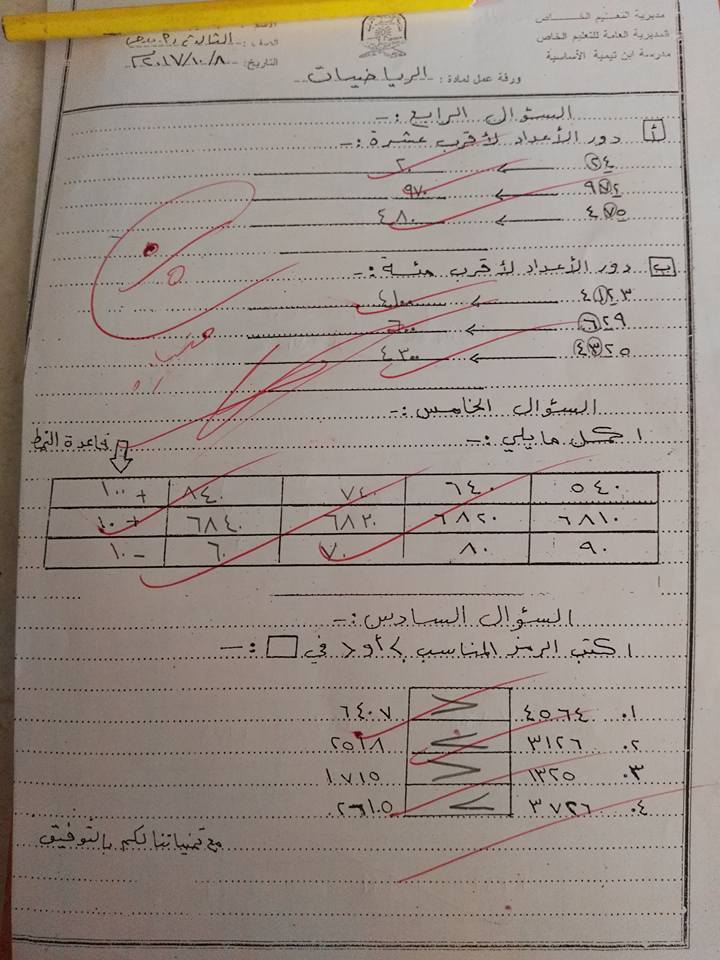 مديرية التعليم الخاص
المديرية العامة للتعليم الخاص
مدرسة ابن تيمية الأساسية
التاريخ: ٢٠١٧/١٠/٨
ورقة عمل لمادة: الرياضيات
السؤال الرابع :-
أ دور الأعداد لأقرب عشرة :-
٢٤ ← ٢٠
٩٧٢ ← ٩٧٠
٤٧٥ ← ٤٨٠
ب دور الأعداد لأقرب مئة :-
٤١٢٣ ← ٤١٠٠
٦٢٩ ← ٦٠٠
٤٣٢٥ ← ٤٣٠٠
السؤال الخامس :-
اكمل ما يلي :- قاعدة النمط
٥٤٠ ٦٤٠ ٧٤٠ ٨٤٠ + ١٠٠
٦٨١٠ ٦٨٢٠ ٦٨٣٠ ٦٨٤٠ + ١٠
٩٠ ٨٠ ٧٠ ٦٠ - ١٠
السؤال السادس :-
اكتب الرمز المناسب > أو < في □ :-
١. ٤٥٦٤ > ٦٤٠٧
٢. ٣١٢٦ < ٢٥١٨
٣. ١٣٢٥ > ١٧١٥
٤. ٣٧٢٦ < ٢٦١٥
مع تمنياتنا لكم بالتوفيق